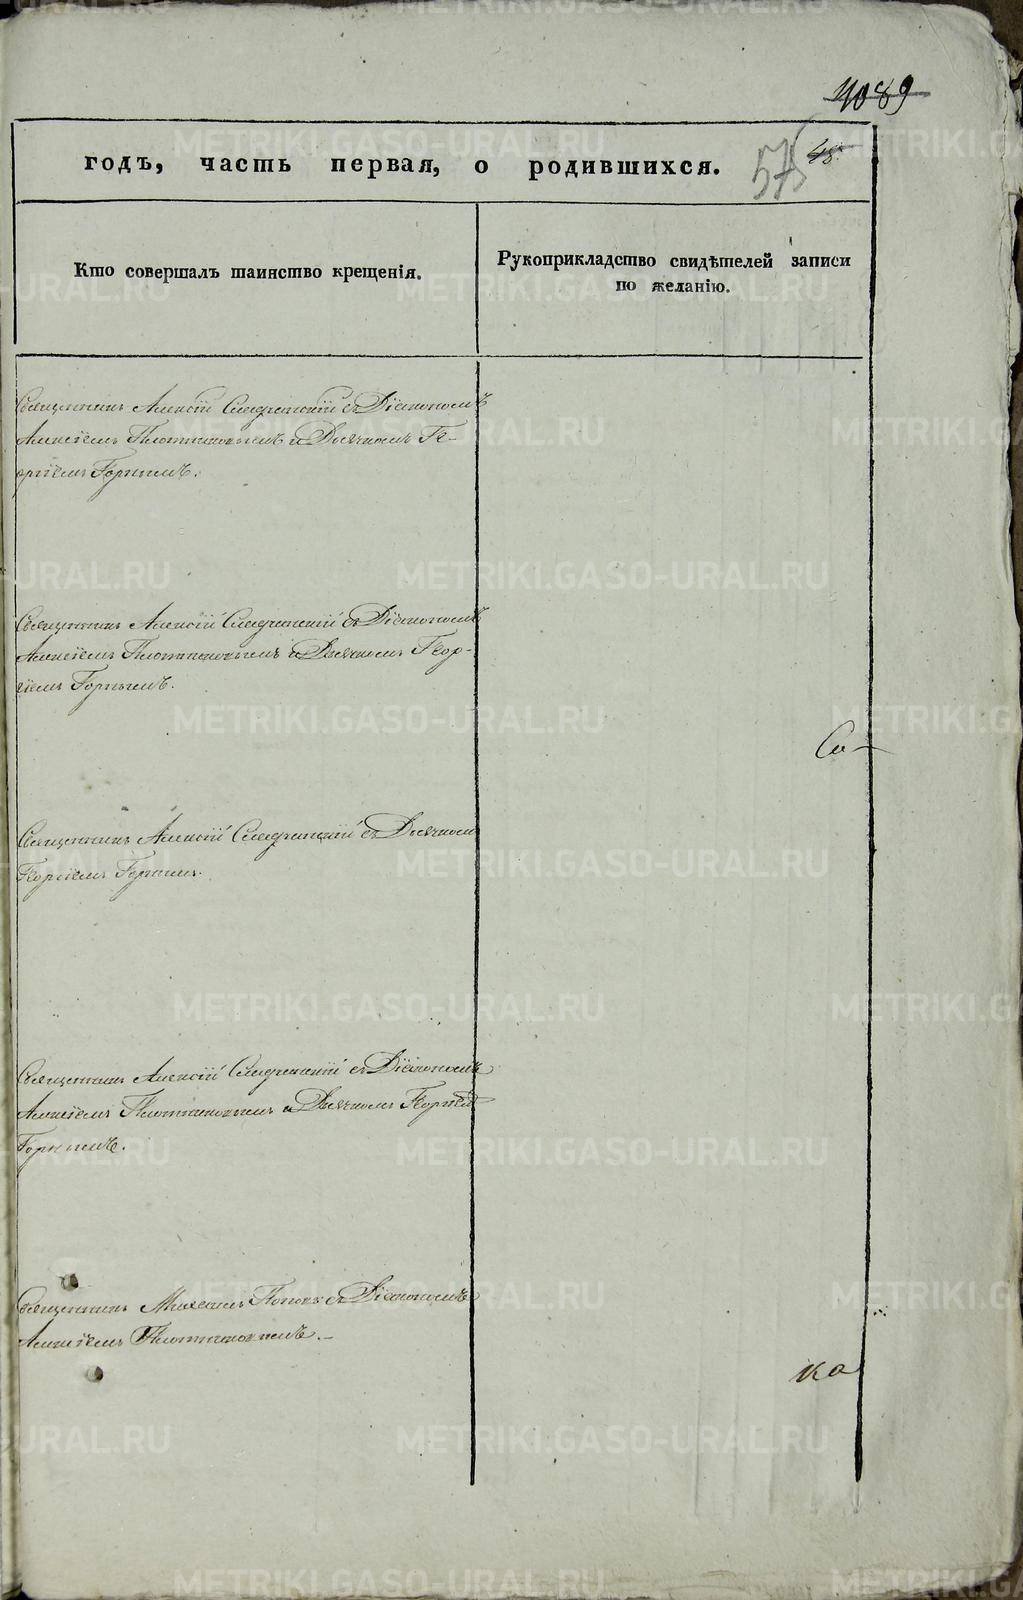 4089
годъ, часть первая, о родившихся.
575 48.
Кто совершалъ таинство крещенія.
Рукоприкладство свидѣтелей записи
по желанію.
Священникъ Алексій съ Діакономъ
Алексіемъ Плотниковымъ и Дьячкомъ Ге-
оргіемъ Горнымъ.
Священникъ Алексій съ Діакономъ
Алексіемъ Плотниковымъ и Дьячкомъ Геор-
гіемъ Горнымъ.
Священникъ Алексій съ Дьячкомъ
Георгіемъ Горнымъ.
Священникъ Алексій съ Діакономъ
Алексіемъ Плотниковымъ и Дьячкомъ Георгіемъ
Горнымъ.
Священникъ Михаилъ Поповъ съ Діакономъ
Алексіемъ Плотниковымъ.
ка
METRIKI.GASO-URAL.RU